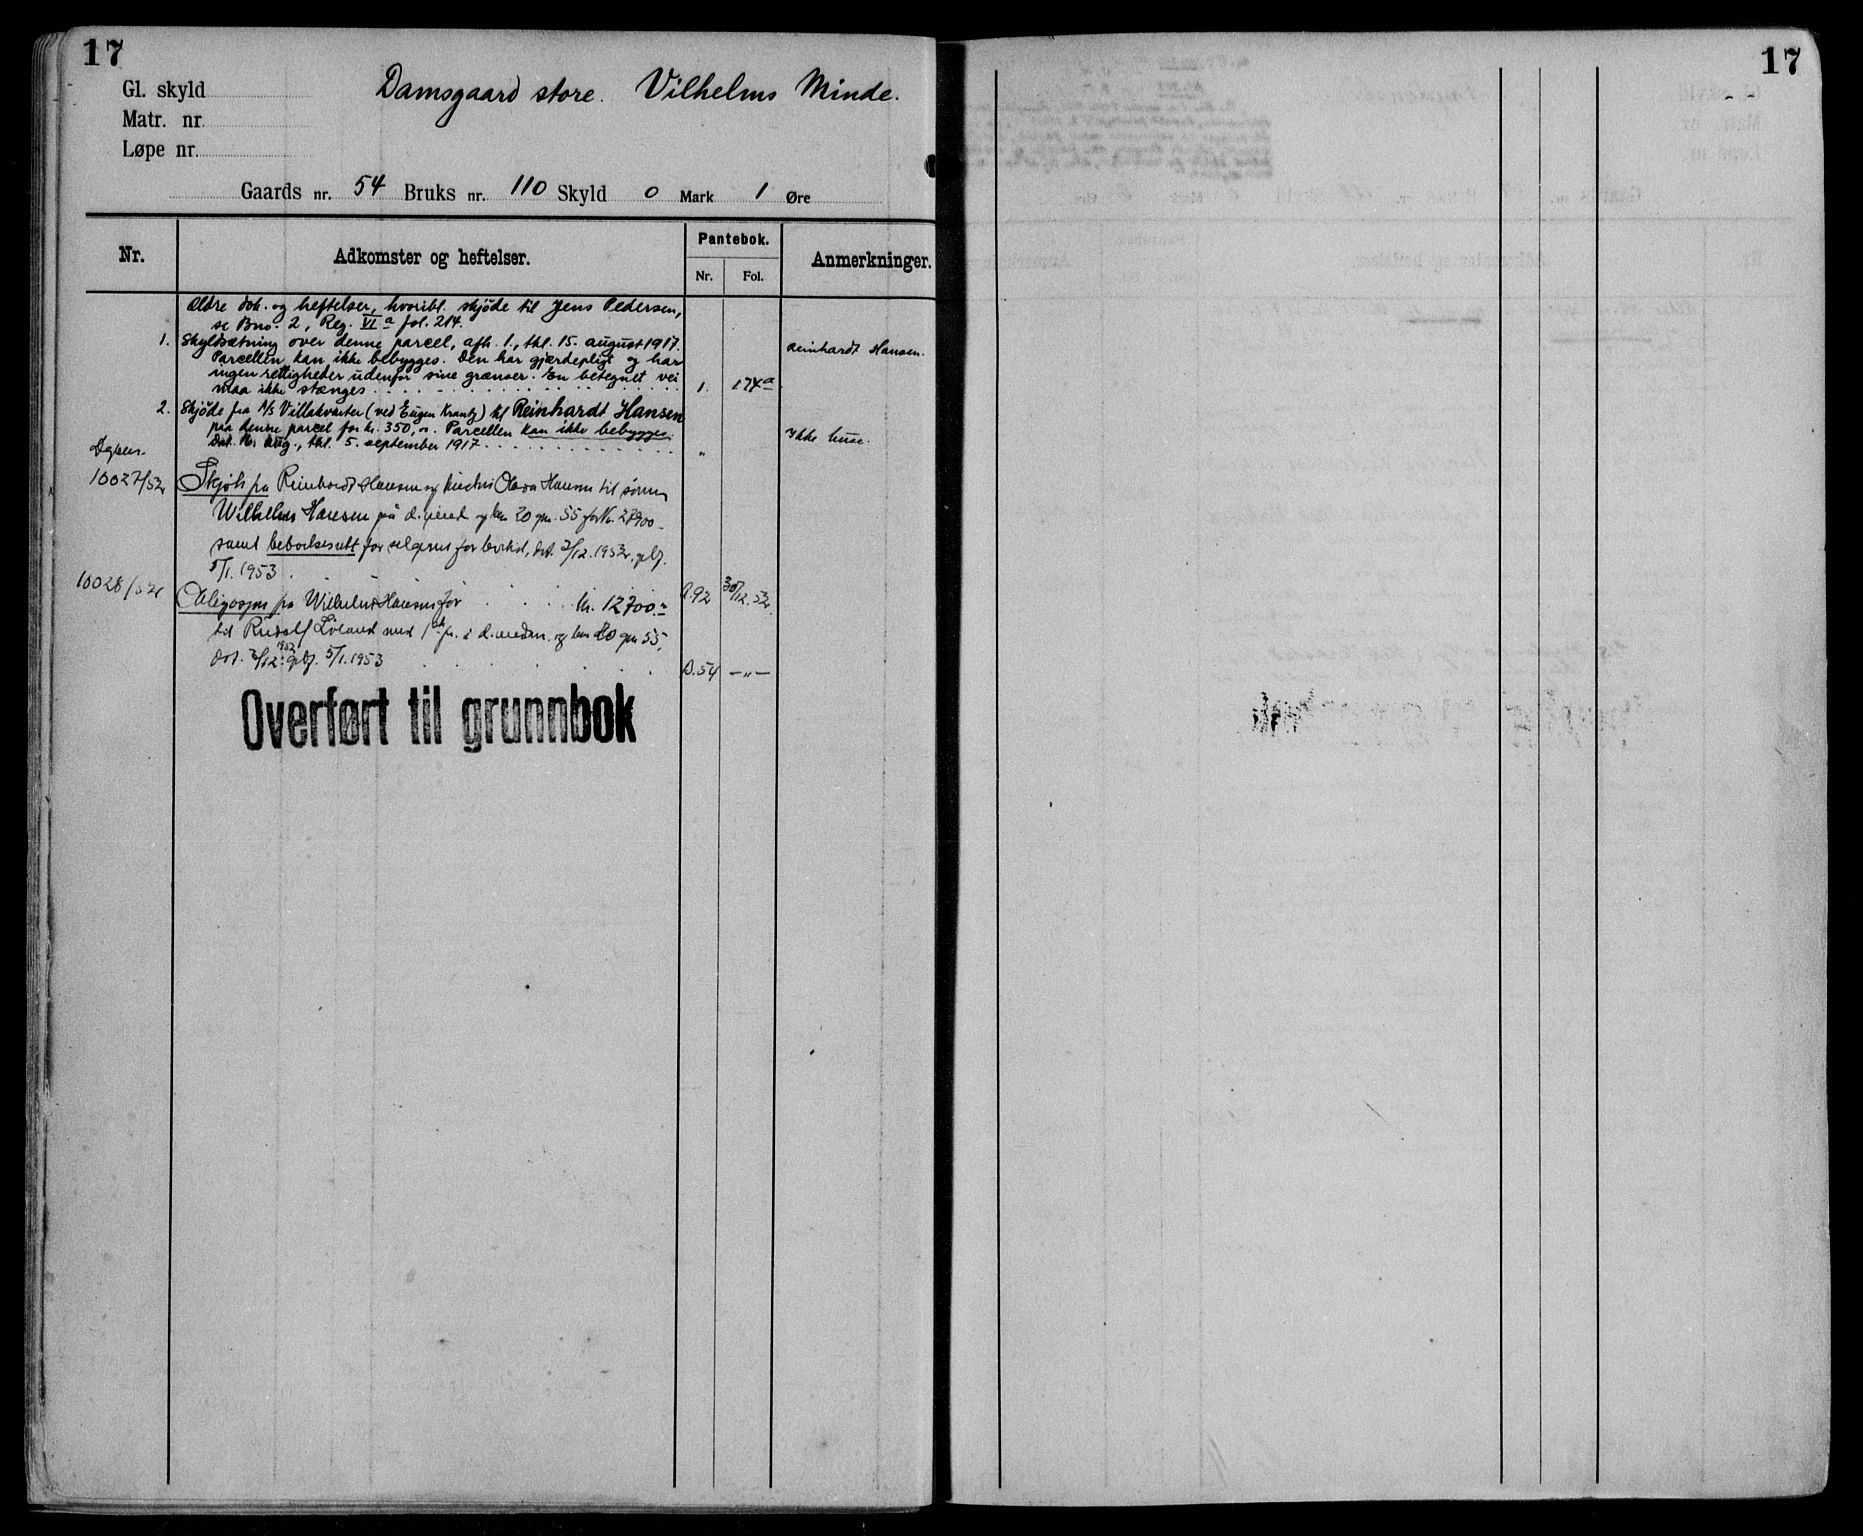 17
17
Gl. skyld Damsgaard store. Vilhelms Minde.
Matr. nr.
Løpe nr.
Gaards nr. 54 Bruks nr. 110 Skyld 0 Mark 1 Øre
Nr. Adkomster og heftelser. Pantebok. Anmerkninger.
Nr. Fol.
Ældre dok. og heftelser, hvoribl. skjøde til Jens Pedersen,
se Bno. 2, Reg. VI a fol. 214.
1. Skyldsætning over denne parcel, afh. 1., thl. 15. august 1917. Reinhardt Hansen.
Parcellen kan ikke bebygges. Den har gjærdepligt og har
ingen rettigheder udenfor sine grænser. En betegnet vei
maa ikke stænges 1. 174a
2. Skjøde fra A/S Villakvarter (ved Eugen Krantz) til Reinhardt Hansen
paa denne parcel for kr. 350,00. Parcellen kan ikke bebygges. Ikke huse.
Dat. 16. aug., thl. 5. september 1917 "
Dgbnr.
10027/52 Skjøte fra Reinhardt Hansen og hustru Olava Hansen til sønnen
Wilhelm Hansen på d. eiend og bnr 20 gnr. 55 for kr. 27900.-
samt boretsrett for selgerne for levetid, dat. 2/12. 1952, glbj.
5/1. 1953 A.92 30/12.52.
10028/52 Obligasjon fra Wilhelm Hansen for kr. 12700.-
til Rudolf Löland med 1ste pr. i d. eiendom og bnr 20 gnr 55,
dat. 2/12. 1952 glbj. 5/1. 1953 D.54 —"—
Overført til grunnbok